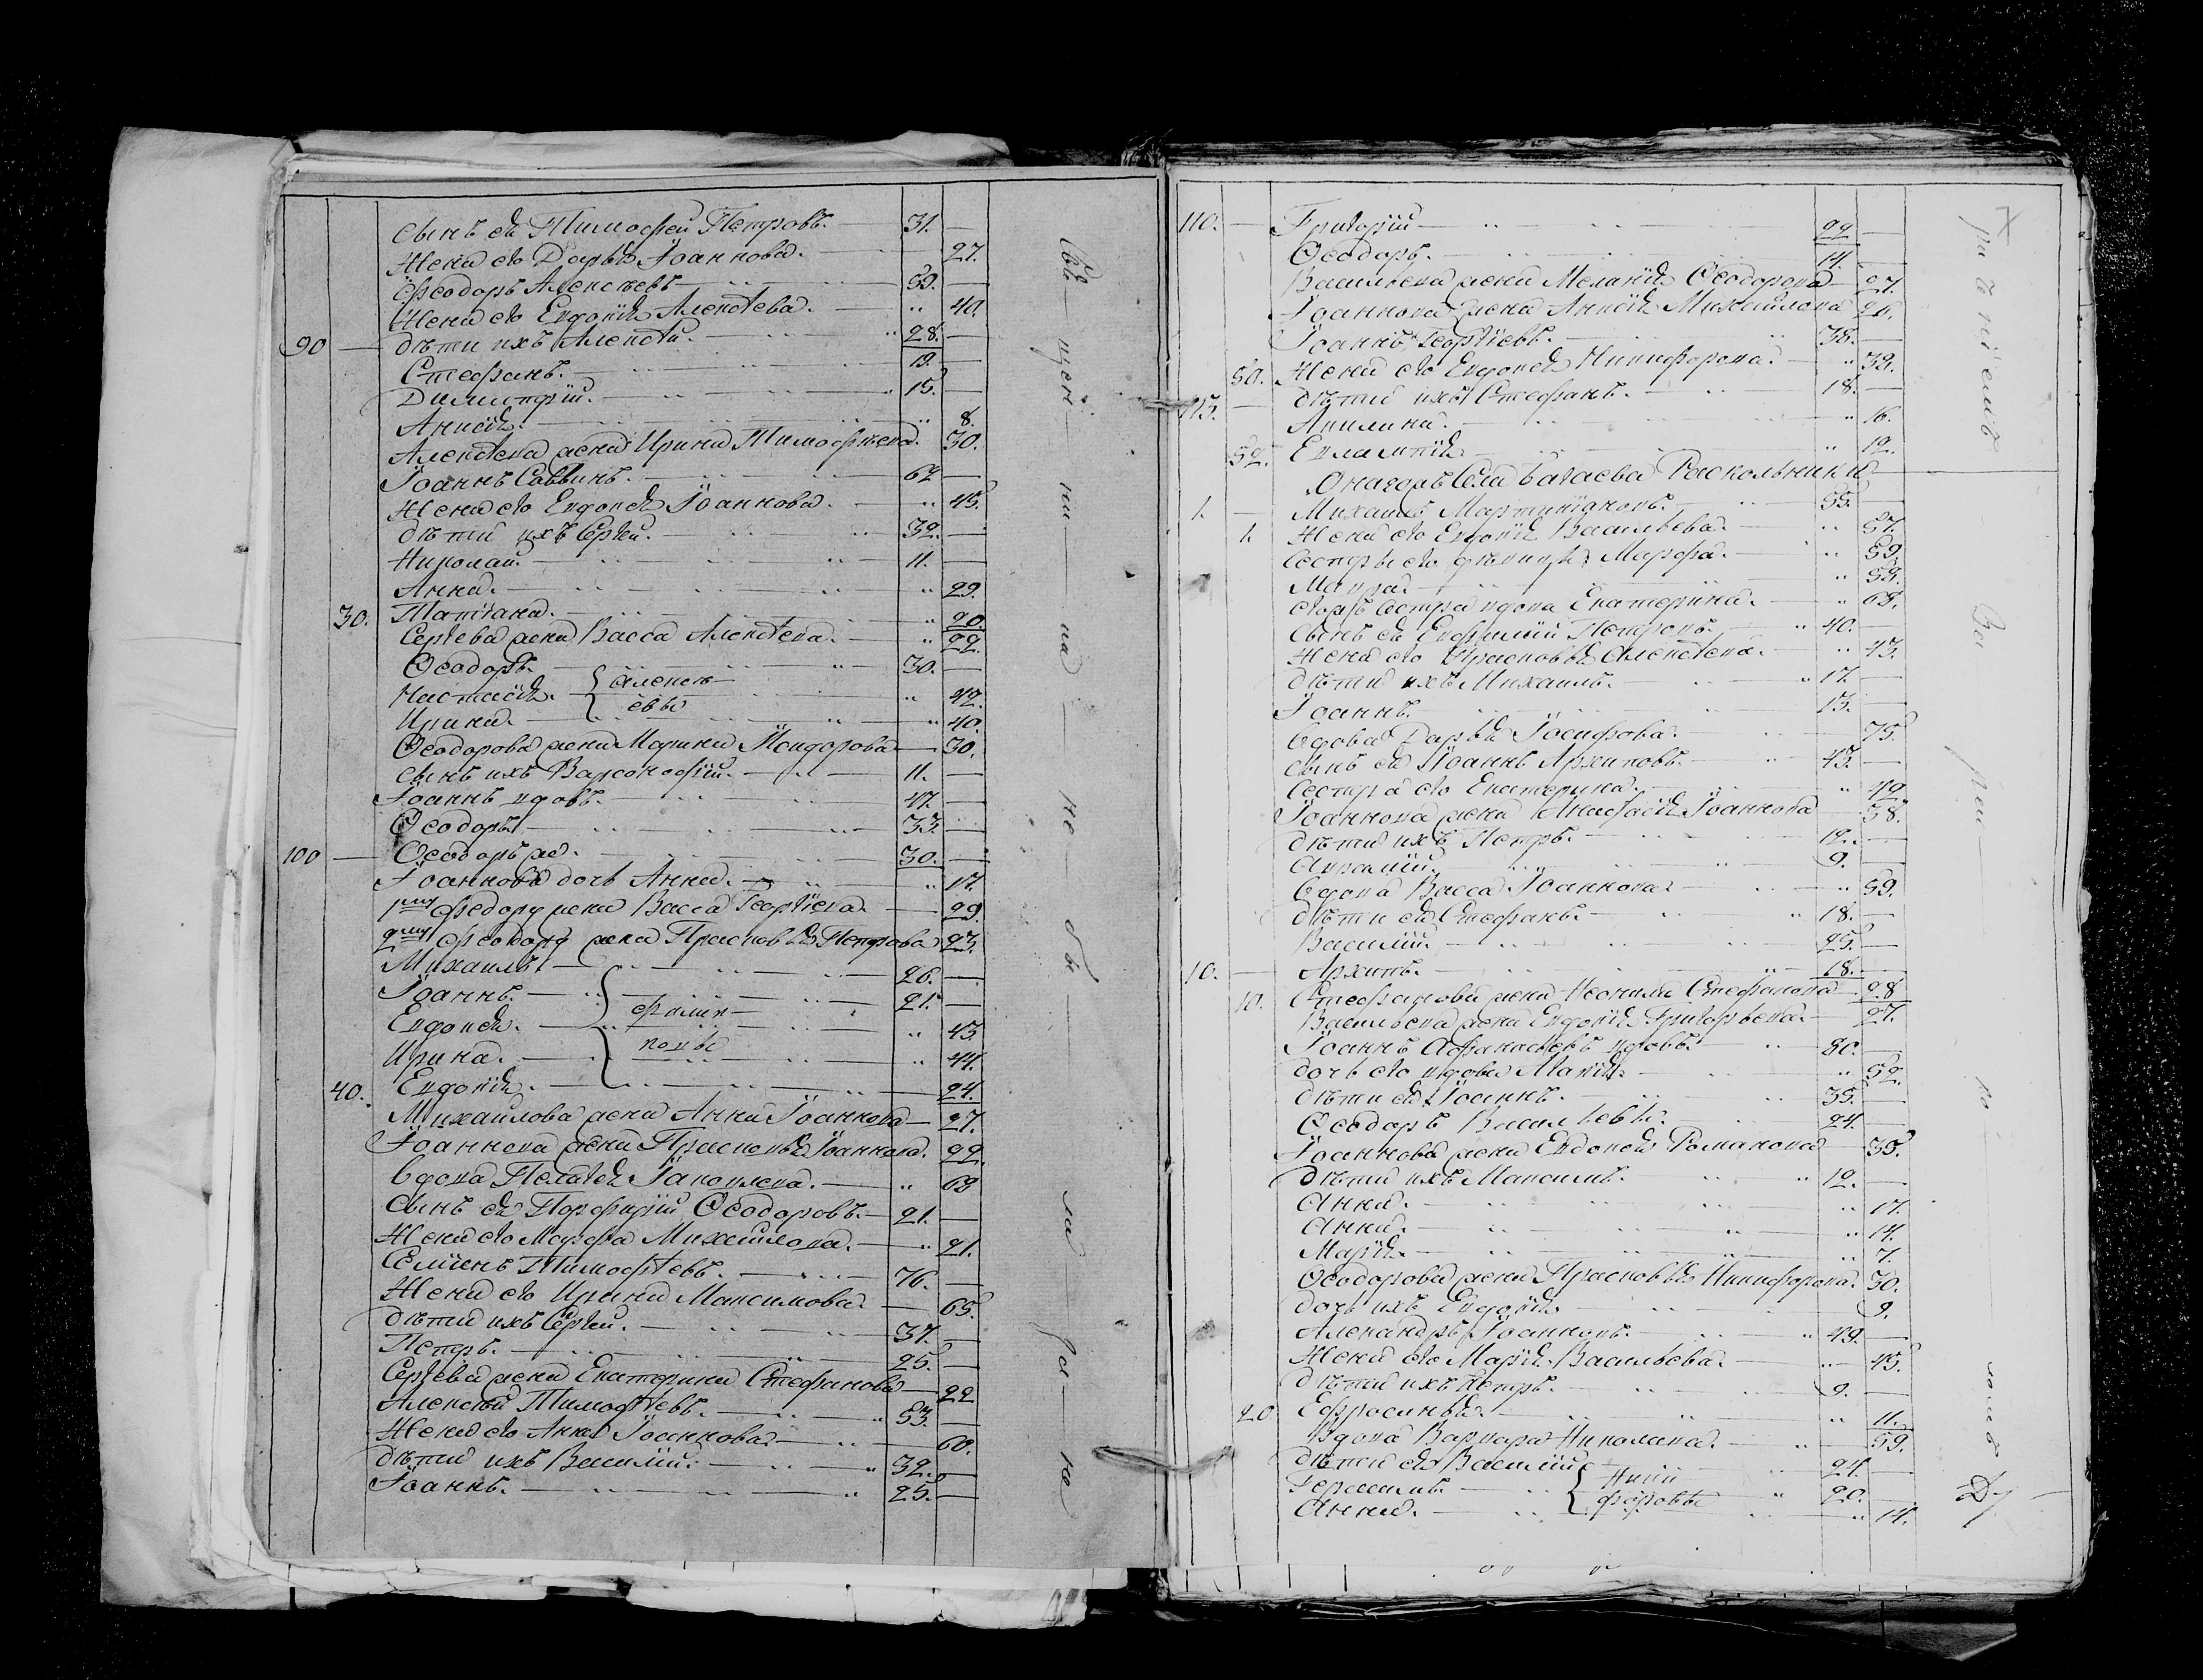 сынъ ея Тимофей Петровъ. — 31. —
Жена его Дарья Іоаннова. — 27.
Ѳеодоръ Алексѣевъ — 59. —
Жена его Евдокія Алексѣева. — „ 40.
90 — дѣти ихъ Алексѣй. — „ 28. —
Стефанъ. — 19. —
Димитрій. — „ 15. —
Анисія. — „ 8.
Алексѣева жена Ирина Тимофѣева. 30.
Іоаннъ Саввинъ. — 62 —
Жена его Евдокія Іоаннова. — „ 45.
дѣти ихъ Сергѣй. — 32. —
Николай. — 11. —
Анна. — „ 29.
30. Татіана. — „ 20.
Сергѣева жена Васса Алексѣева. — „ 22.
Ѳеодоръ. — 30. —
Настасія. — { алексѣ— „ 42.
Ирина. — евы „ 40.
Ѳеодорова жена Марина Исидорова — 30.
сынъ ихъ Варсонофій. — 11. —
Іоаннъ вдовъ. — 47. —
Ѳеодоръ. — 33. —
100 — Ѳеодоръ же. — 30. —
Іоаннова дочь Анна. — „ 17.
1му Ѳедору жена Васса Георгіева. — 29.
2му Ѳеодору жена Прасковья Петрова 23.
Михаилъ — 26. —
Іоаннъ. — 21. —
Евдокія. — { филип— „ 43.
Ирина. — повы „ 44.
40. Евдокія. — 24.
Михайлова жена Анна Іоаннова — 27.
Іоаннова жена Прасковья Іоаннова. 22.
Вдова Пелагея Іаковлева. — „ 63
Сынъ ея Порфирій Ѳеодоровъ. — 21. —
Жена его Марфа Михайлова. — „ 21.
Семіенъ Тимофѣевъ. — 76. —
Жена его Ирина Максимова — 65.
дѣти ихъ Сергѣй. — 37. —
Петръ. — 25. —
Сергѣева жена Екатерина Стефанова — 22
Алексѣй Тимофѣевъ. — „ 53. —
Жена его Анна Іоаннова — 60.
дѣти ихъ Василій. — „ 32. —
Іоаннъ. — „ 25. —
110. — Григорій — 22 —
Ѳеодоръ. — 14. —
Васильева жена Меланія Ѳеодорова — 27.
Іоаннова жена Анисія Михайлова 20.
Іоаннъ Георгіевъ. — 38. —
50. Жена его Евдокія Никифорова. — „ 39.
115. — дѣти ихъ Стефанъ. — 18. —
Акилина. — „ 16.
52. Евлампія — „ 12.
Онагоръ Села Батаева Раскольники
1. — Михаилъ Мартиніановъ. — 55. —
1. Жена его Евдокія Васильева. — „ 57.
Сестры его дѣвицы Марфа. — „ 59.
Мавра. — „ 53.
его жъ сестра вдова Екатерина. — „ 63.
Сынъ ея Евфимій Петровъ. — „ 40. —
Жена его Прасковья Алексѣева. — „ 43.
дѣти ихъ Михаилъ. — „ 17. —
Іоаннъ. — 13. —
Вдова Дарья Іосифова. — 75.
сынъ ея Іоаннъ Архиповъ. — „ 43. —
Сестра его Екатерина. — „ 49.
Іоаннова жена Анастасія Іоаннова 38.
дѣти ихъ Петръ. — 12. —
— „ 9. —
Вдова Васса Іоаннова. — „ 59.
дѣти ея Стефанъ. — „ 18. —
Василій — 25. —
10. — Архипъ. — „ 18. —
10. Стефанова жена Неонила Стефанова — 28
Васильева жена Евдокія Григорьева. — 27.
Іоаннъ Афанасьевъ вдовъ. — „ 80. —
дочь его вдова Марія. — „ 52.
дѣти ея Іоаннъ. — 35. —
Ѳеодоръ Васильевы. 24. —
Іоаннова жена Евдокія Романова — 35.
дѣти ихъ Максимъ. „ 12. —
Анна. — „ 17.
Анна. — „ 14.
Марія. — „ 7.
Ѳеодорова жена Прасковья Никифорова. 30.
дочь ихъ Евдокія — 9.
Александръ Іоанновъ. — „ 49. —
Жена его Марія Васильева. — „ 45.
дѣти ихъ Петръ. — 9. —
20 Ефросинья. — „ 11.
Вдова Варвара Николаева. — „ 59.
дѣти ея Василій — 24. —
Герасимъ. — { Ники— „ 20. —
Анна. — форовы „ 14.